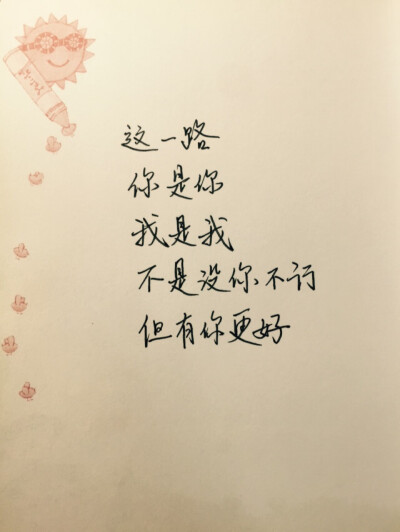 这一路
你是你
我是我
不是没你、不行
但有你更好